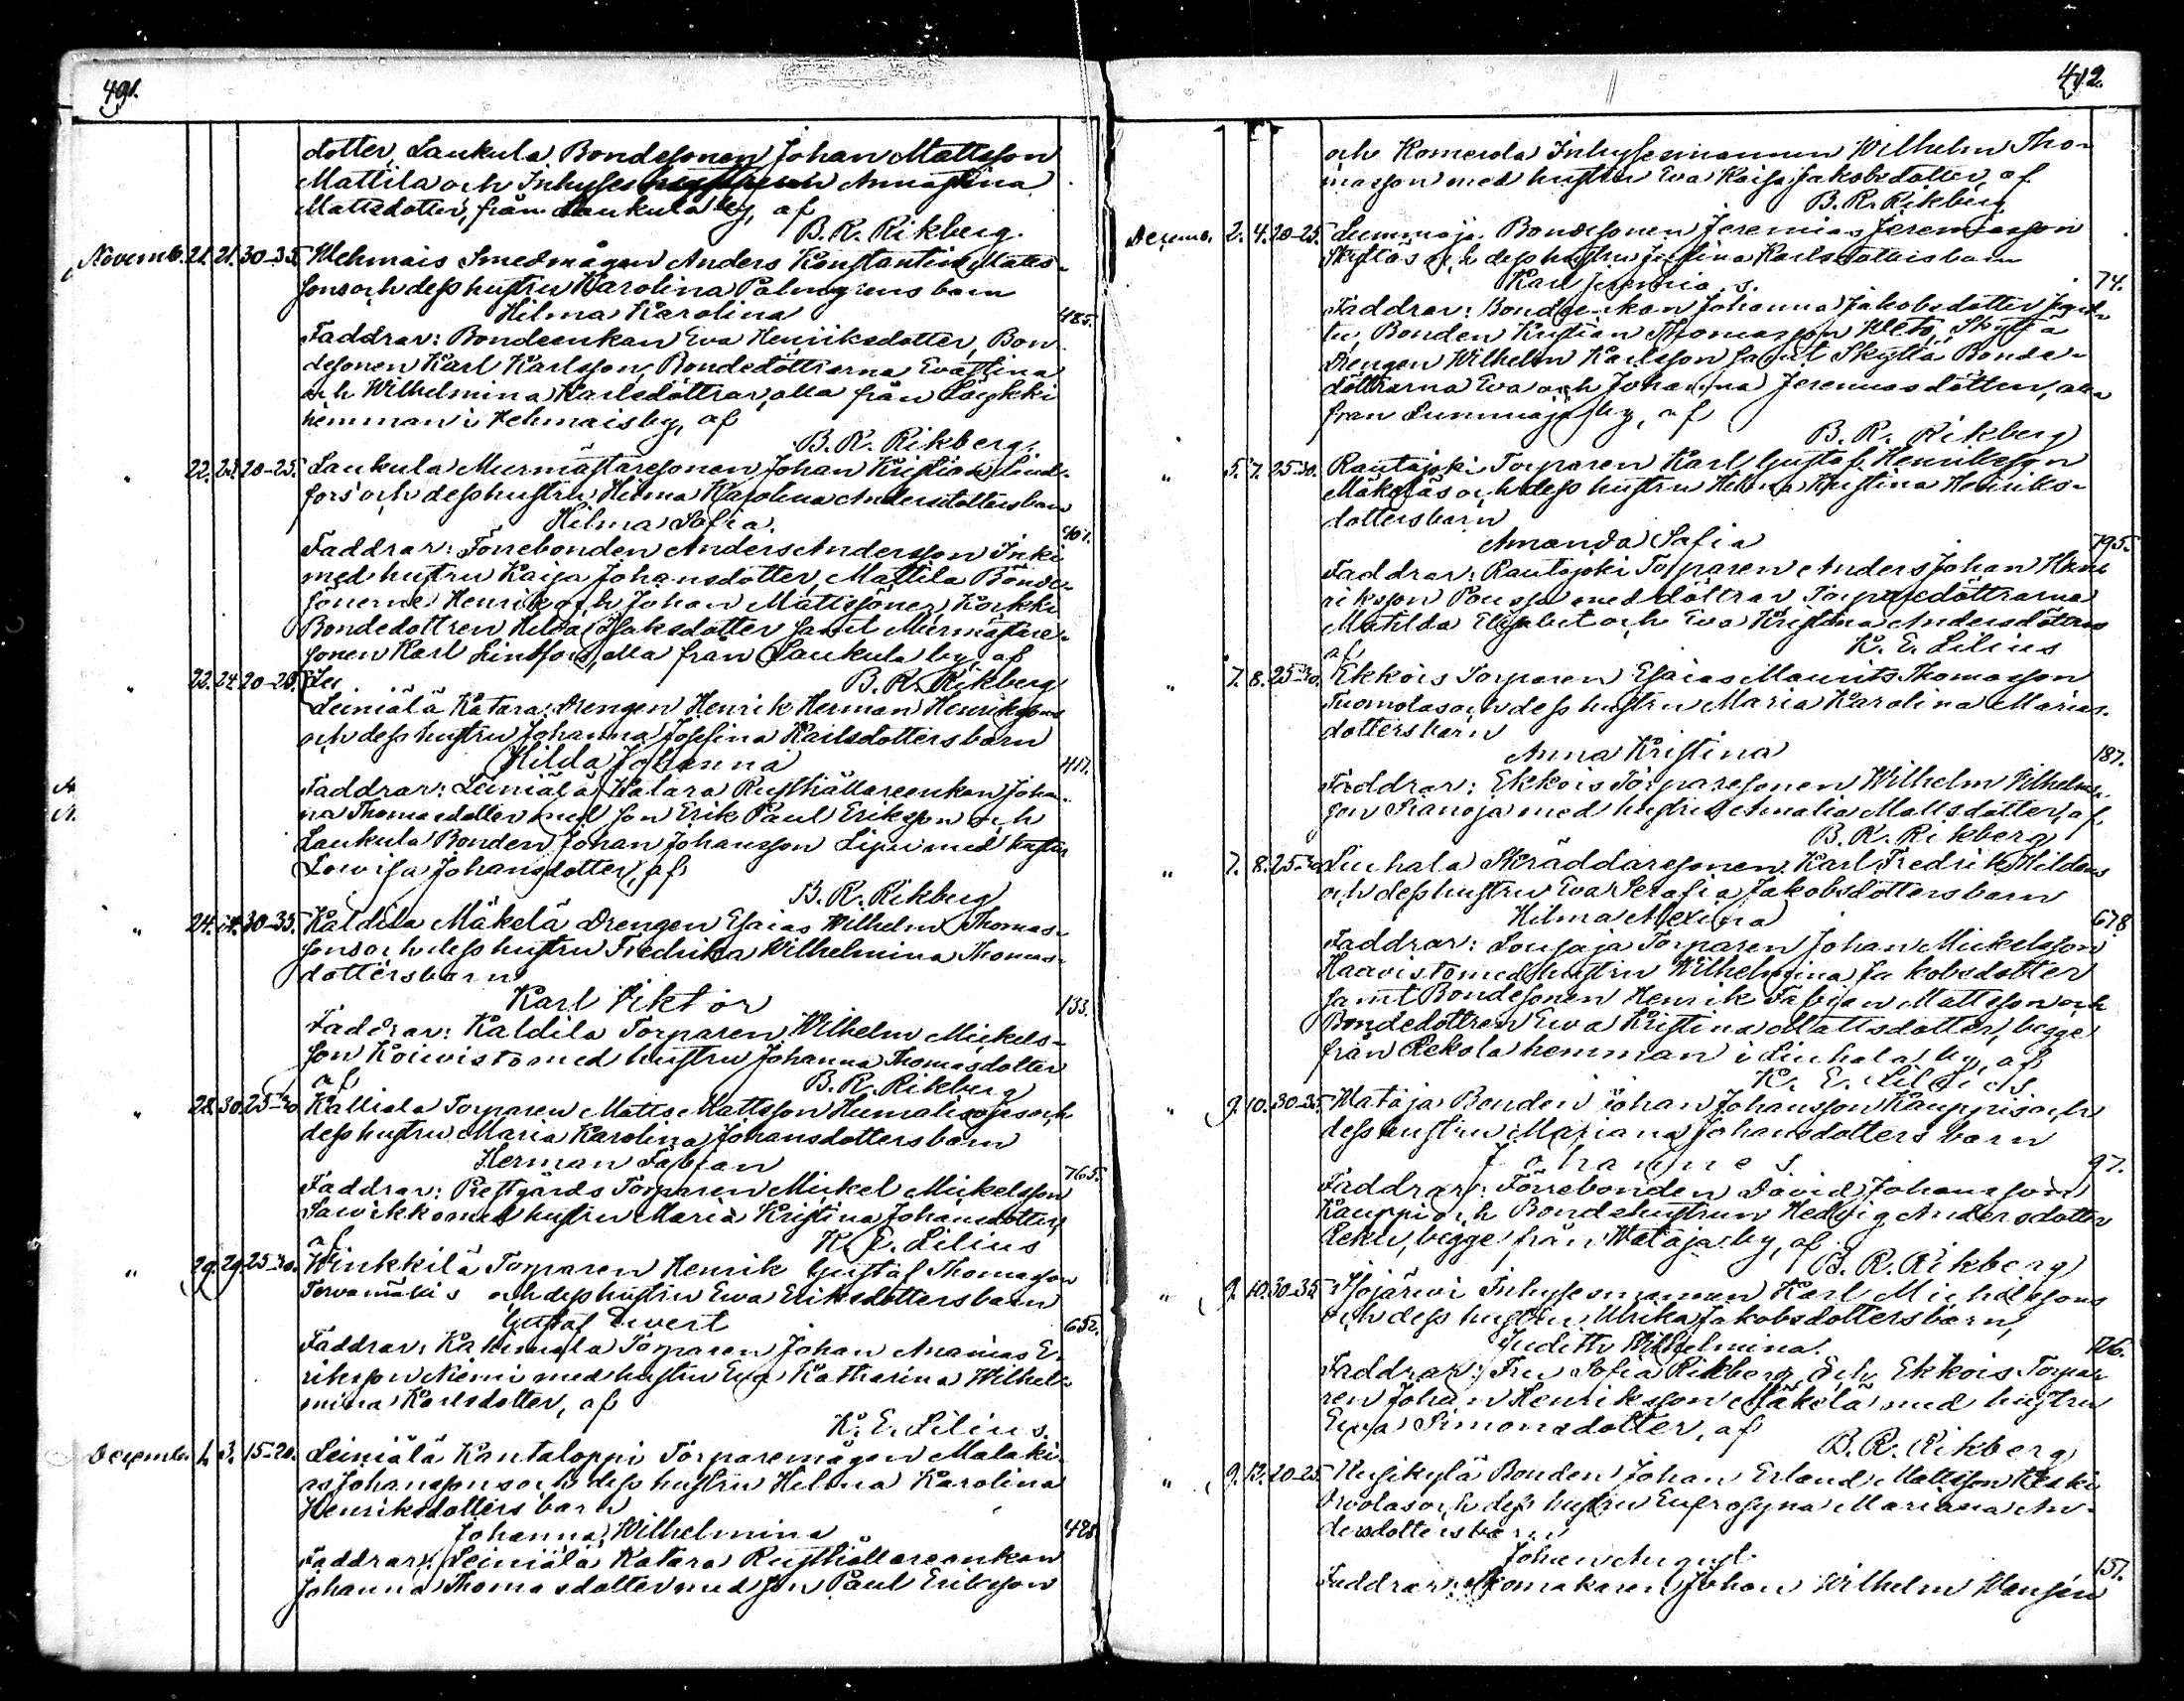 491.
dotter, Laukula Bondesonen Johan Mattsson
Mattila och Inhyses Annastina
Mattsdotter, från Laukula by, af
B. R. Rikberg.
Novemb. 21. 21. 30-35. Mehmais Smedmågen Anders Konstantin Matts-
sons och dess hustru Karolina Palmgrens barn
Hilma Karolina 485.
Faddrar: Bondeenkan Eva Henriksdotter, Bon-
desonen Karl Karlsson, Bondedöttrarna Evastina
och Wilhelmina Karlsdöttrar, alla från
hemman i Mehmais by, af
B. R. Rikberg.
" 22. 23. 20-25. Laukula Murmästaresonen Johan Kristian Lind-
fors och dess hustru Hilma Karolina Andersdotters barn
Hilma Sofia. 401.
Faddrar: Förrebonden Anders Andersson Inki
med hustru Kaisa Johansdotter, Mattila Bonde-
sönerne Henrik och Johan Mattssöner, Korkki
Bondedottren Hilda Isaksdotter samt Murmästare-
sonen Karl Lindfors, alla från Laukula by, af
B. R. Rikberg
" 22. 24. 20-25. Lei
Leiniälä Katara Drengen Henrik Herman Henrikssons
och dess hustru Johanna Josefina Karlsdotters barn
Hilda Johanna 417.
Faddrar: Leiniälä Katara Rusthållareenkan Johan-
na Thomasdotter med son Erik Paul Eriksson och
Laukula Bonden Johan Johansson Lipu med hustru
Lowisa Johansdotter, af
B. R. Rikberg
" 24. 24. 30-35. Kaldila Mäkelä Drengen Esaias Wilhelm Thomas-
sons och dess hustru Fredrika Wilhelmina Thomas-
dotters barn
Karl Viktor 133.
Faddrar: Kaldila Torparen Wilhelm Mickels-
son Koivisto med hustru Johanna Thomasdotter
af B. R. Rikberg
" 28. 30. 25-30. Kalliala Torparen Matts Mattsson Humalisojas och
dess hustru Maria Karolina Johansdotters barn
Herman Fabian 765.
Faddrar: Prestgårds Torparen Mickel Mickelsson
Sawikko med hustru Maria Kristina Johansdotter,
af K. E. Lilius
" 29. 29. 25-30. Winkkilä Torparen Henrik Gustaf Thomasson
Tervamäkis och dess hustru Ewa Eriksdotters barn
Gustaf Ewert 652.
Faddrar: Torparen Johan Ananias E-
riksson Niemi med hustru Eva Katharina Wilhel-
mina Karlsdotter, af
K. E. Lilius.
December 1. 3. 15-20. Leiniälä Kantaloppi Torparemågen Malaki-
as Johanssons och dess hustru Helena Karolina
Henriksdotters barn
Johanna Wilhelmina 428.
Faddrar: Leiniälä Katara Rusthållareenkan
Johanna Thomasdotter med son Paul Eriksson
492.
och Komerola Inhysesmannen Wilhelm Tho-
masson med hustru Eva Kaisa Jakobsdotter, af
B. R. Rikberg
Decemb. 2. 4. 20-25. Lummaja Bondesonen Jeremias Jeremiasson
Skyttäs och dess hustru Justina Karlsdotters barn
Karl Jeremias. 74.
Faddrar: Bondeenkan Johanna Jakobsdotter
Bonden Kristian Thomasson Skyttä
Drengen Wilhelm Karlsson samt Skyttä Bonde-
döttrarna Eva och Johanna Jeremiasdöttrar, alla
från Lummaja by, af
B. R. Rikberg
" 5. 7. 25-30. Rautajoki Torparen Karl Gustaf Henriksson
Mäkeläs och dess hustru Helena Kristina Henriks-
dotters barn
Amanda Sofia 795.
Faddrar: Rautajoki Torparen Anders Johan Hen-
riksson Pousse med döttrar Torparedöttrarna
Matilda Elisabet och Eva Kristina Andersdöttrar
af K. E. Lilius
" 7. 8. 25-30. Ekkois Torparen Esaias Maurits Thomasson
Tuomolas och dess hustru Maria Karolina Marias-
dotters barn
Anna Kristina 187.
Faddrar: Ekkois Torparesonen Wilhelm Wilhelms-
son Pianoja med hustru Amalia Mattsdotter, af
B. R. Rikberg
" 7. 8. 25-30. Liuhala Skräddaresonen Karl Fredrik Hildens
och dess hustru Eva Serafia Jakobsdotters barn
Hilma Alexina 678
Faddrar: Sousaja Torparen Johan Mickelsson
Haavisto med hustru Wilhelmina Jakobsdotter
samt Bondesonen Henrik Fabian Mattsson och
Bondedottren Ewa Kristina Mattsdotter, begge
från Rekola hemman i Liuhala by, af
K. E. Lilius
" 9. 10. 30-35. Mataja Bonden Johan Johansson Kauppis och
dess hustru Mariana Johansdotters barn
Johannes. 97.
Faddrar: Förrebonden David Johansson
Kauppi och Bondehustrun Hedvig Andersdotter
Reku, begge från Mataja by, af
B. R. Rikberg
" 9. 10. 30-35. Isojärvi Inhysesmannen Karl Michelssons
och dess hustru Ulrika Jakobsdotters barn,
Judith Wilhelmina. 126.
Faddrar: Fru Sofia Rikberg och Ekkois Torpa-
ren Johan Henriksson Mäkelä med hustru
Ewa Simonsdotter, af
B. R. Rikberg
" 9. 12. 20-25. Uusikylä Bonden Johan Erland Mattsson Keski
och dess hustru Eufrosyna Mariana An-
dersdotters barn
Johan August. 157.
Faddrar: Skomakaren Johan Wilhelm Wansén